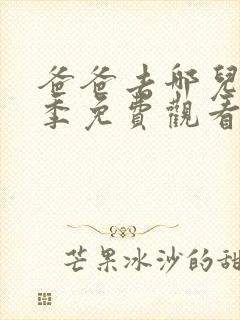 爸爸去哪兒
季免費觀看
芒果冰沙的甜